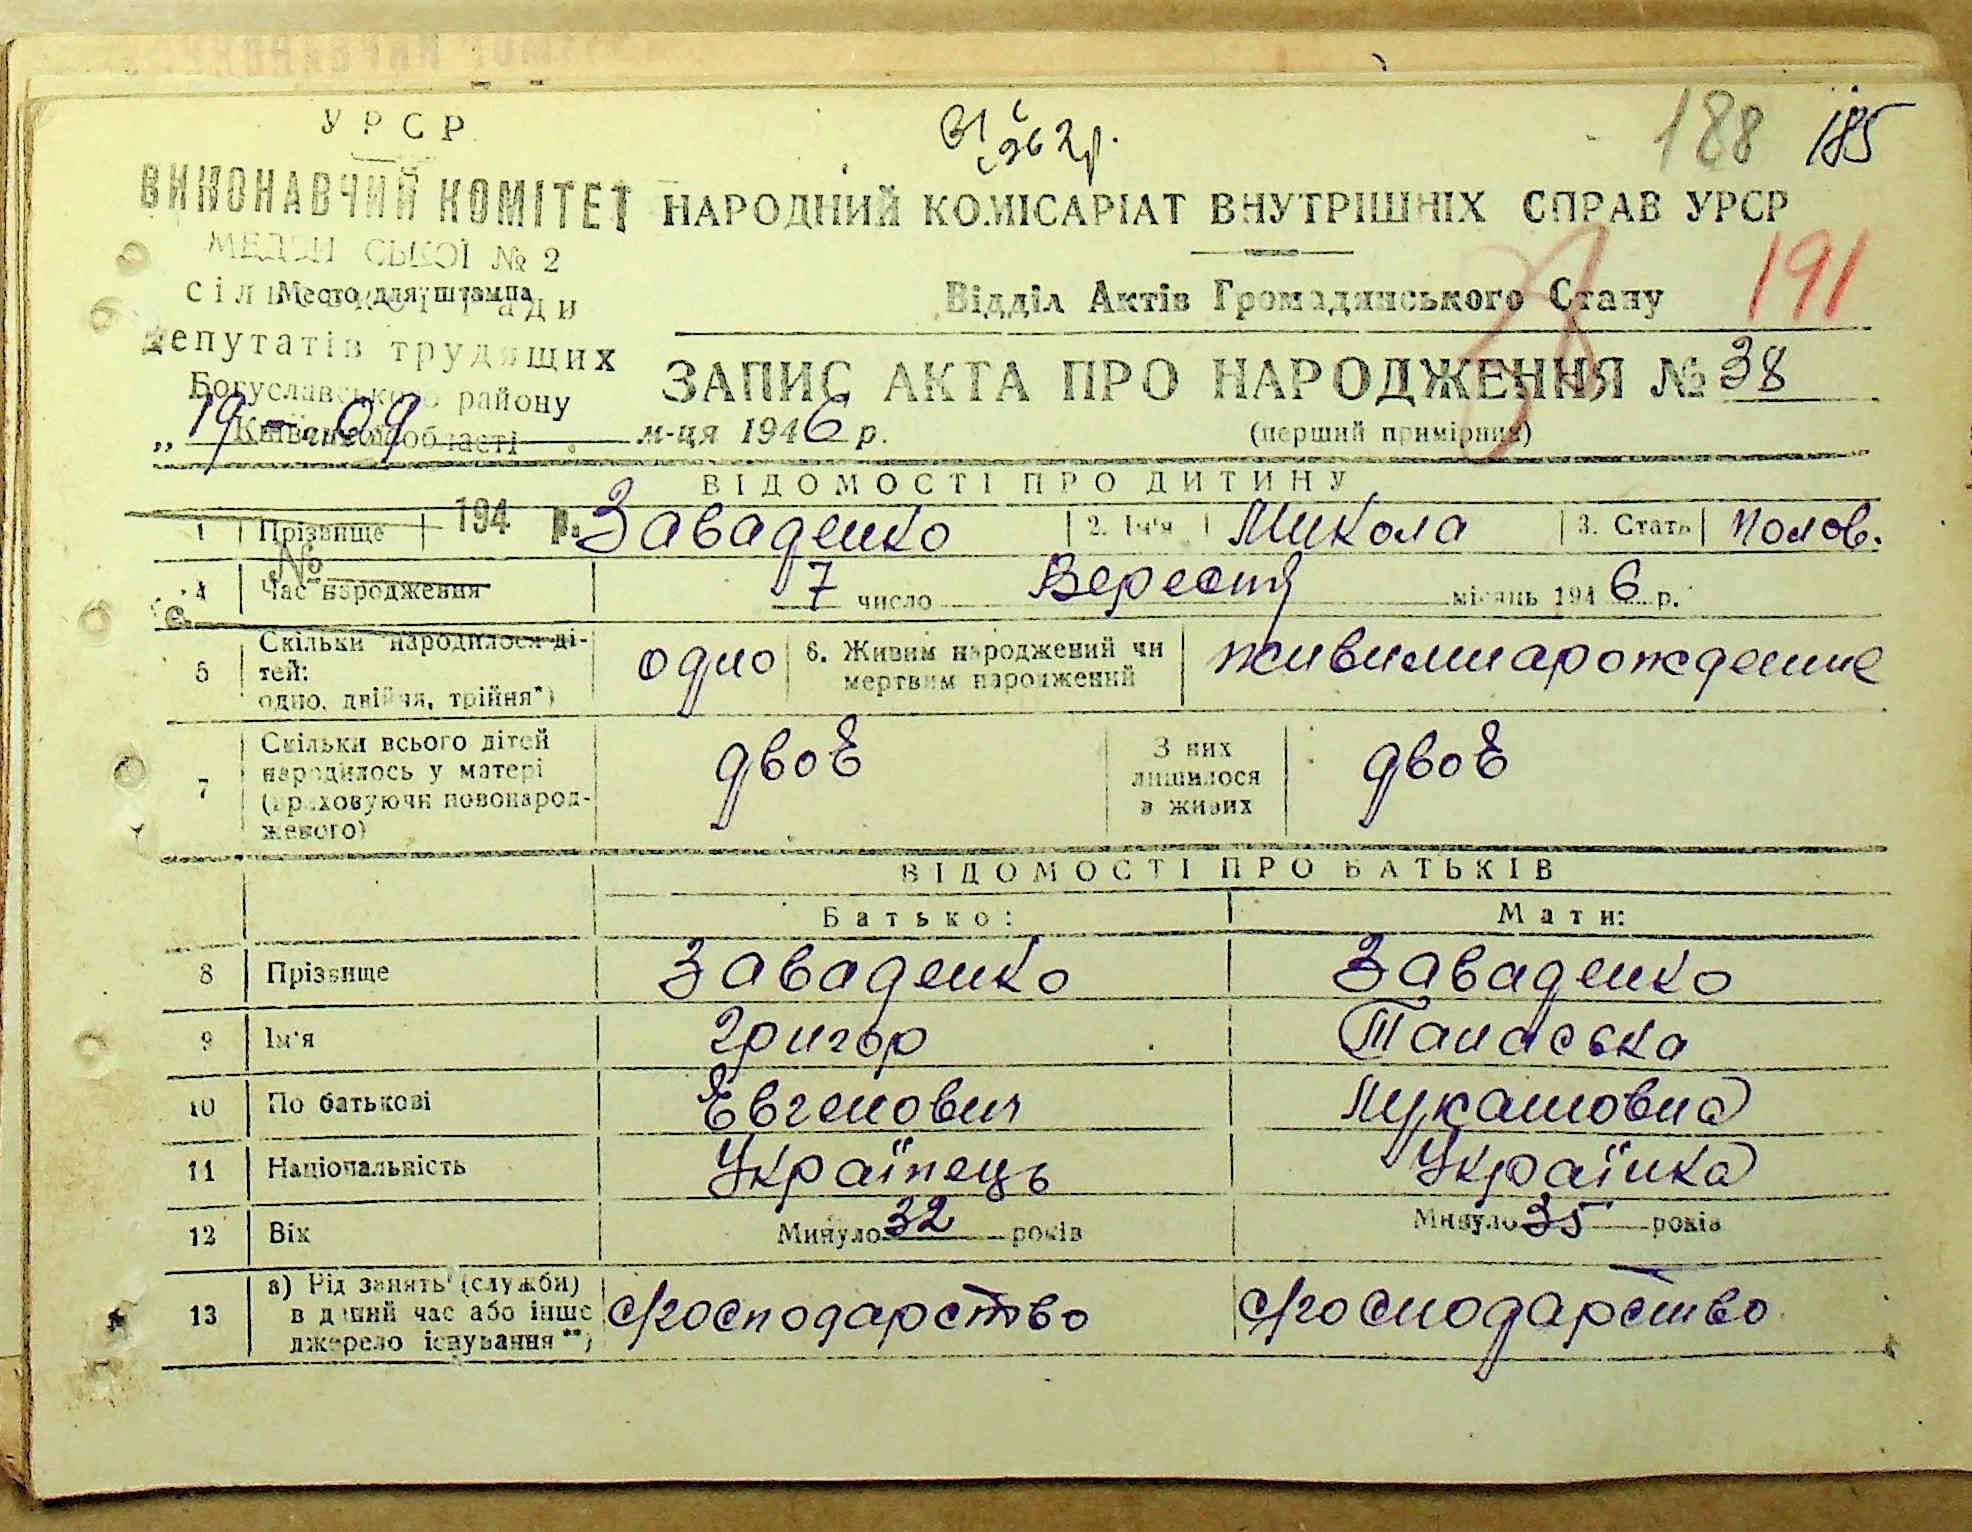 188 185
У Р С Р
ВИКОНАВЧИЙ КОМІТЕТ
НАРОДНИЙ КОМІСАРІАТ ВНУТРІШНІХ СПРАВ УРСР
№ 2
Место для штампа
Відділ Актів Громадянського Стану
191
депутатів трудящих
Богуславського району
Київської області
ЗАПИС АКТА ПРО НАРОДЖЕННЯ № 38
„ 19 - 09 м-ця 1946 р.
(перший примірник)
ВІДОМОСТІ ПРО ДИТИНУ
194 р.
1 Прізвище Заваденко 2. Ім'я Микола 3. Стать Полов.
№
4 Час народження 7 число Вересня місяць 1946 р.
5 Скільки народилося ді-
тей:
одно, двійня, трійня*)
одно
6. Живим народжений чи
мертвим народжений
живимнарождение
7 Скільки всього дітей
народилось у матері
(враховуючи новонарод-
женого)
двоє
З них
лишилося
в живих
двоє
ВІДОМОСТІ ПРО БАТЬКІВ
Батько: Мати:
8 Прізвище Заваденко Заваденко
9 Ім'я Григор Танаська
10 По батькові Евгенович Лукашовна
11 Національність Українець Українка
12 Вік Минуло 32 років Минуло 35 років
13 а) Рід занять (служби)
в даний час або інше
джерело існування **)
с/господарство с/господарство